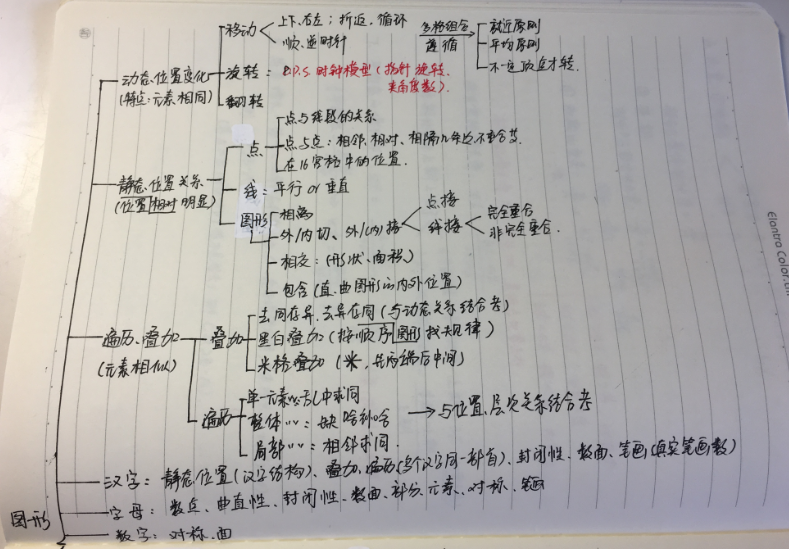 移动
上下、右左；折返、循环
顺、逆时针
多格组合
遵循
就近原则
平均原则
动态位置变化
(特点：元素相同)
旋转： P.S. 时钟模型(指针旋转、
夹角度数)
翻转
静态位置关系
(位置相对明显)
点
点与线段的关系
点与点：相邻、相对、相隔几
在16宫格中的位置
线：平行 or 垂直
图形
相离
外/内切、外/内接
点接
线接
完全重合
非完全重合
相交：(形状、面积)
包含(直、曲图形的内外位置)
遍历、叠加
(元素相似)
叠加
去同存异、去异存同(与动态关系结合考)
黑白叠加(按顺序图形找规律)
米格叠加(米，先两端后中间)
遍历
单一元素 乱中求同
整体〃〃：缺啥补啥
局部〃〃：相邻求同
→与位置、层次关系结合考
汉字：静态位置(汉字结构)、叠加、遍历(每个汉字同一部首)、封闭性、数面、笔画(真实笔画数)
字母：数点、曲直性、封闭性、数面、部分、元素、对称、笔画
数字：对称、面
图形
Elantra Color